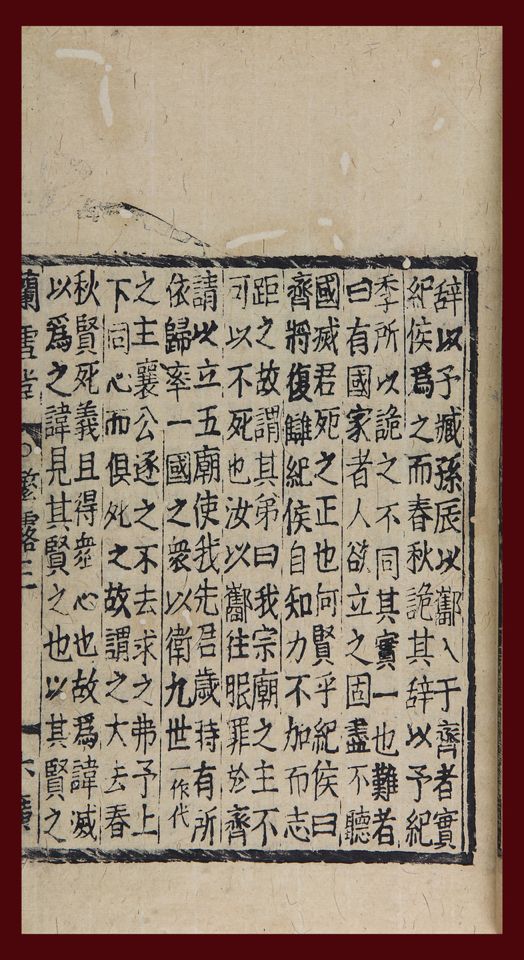 辭以予臧孫辰以酅入于齊者實
紀侯爲之而春秋詭其辭以予紀
季所以詭之不同其實一也難者
曰有國家者人欲立之固盡不聽
國滅君死之正也何賢乎紀侯曰
齊將復讎紀侯自知力不加而志
距之故謂其弟曰我宗廟之主不
可以不死也汝以酅往服罪於齊
請以立五廟使我先君歲時有所
依歸率一國之衆以衛九世一作代
之主襄公逐之不去求之弗予上
下同心而俱死之故謂之大去春
秋賢死義且得衆心也故爲諱滅
以爲之諱見其賢之也以其賢之
蘭雪堂 ○ 繁露三